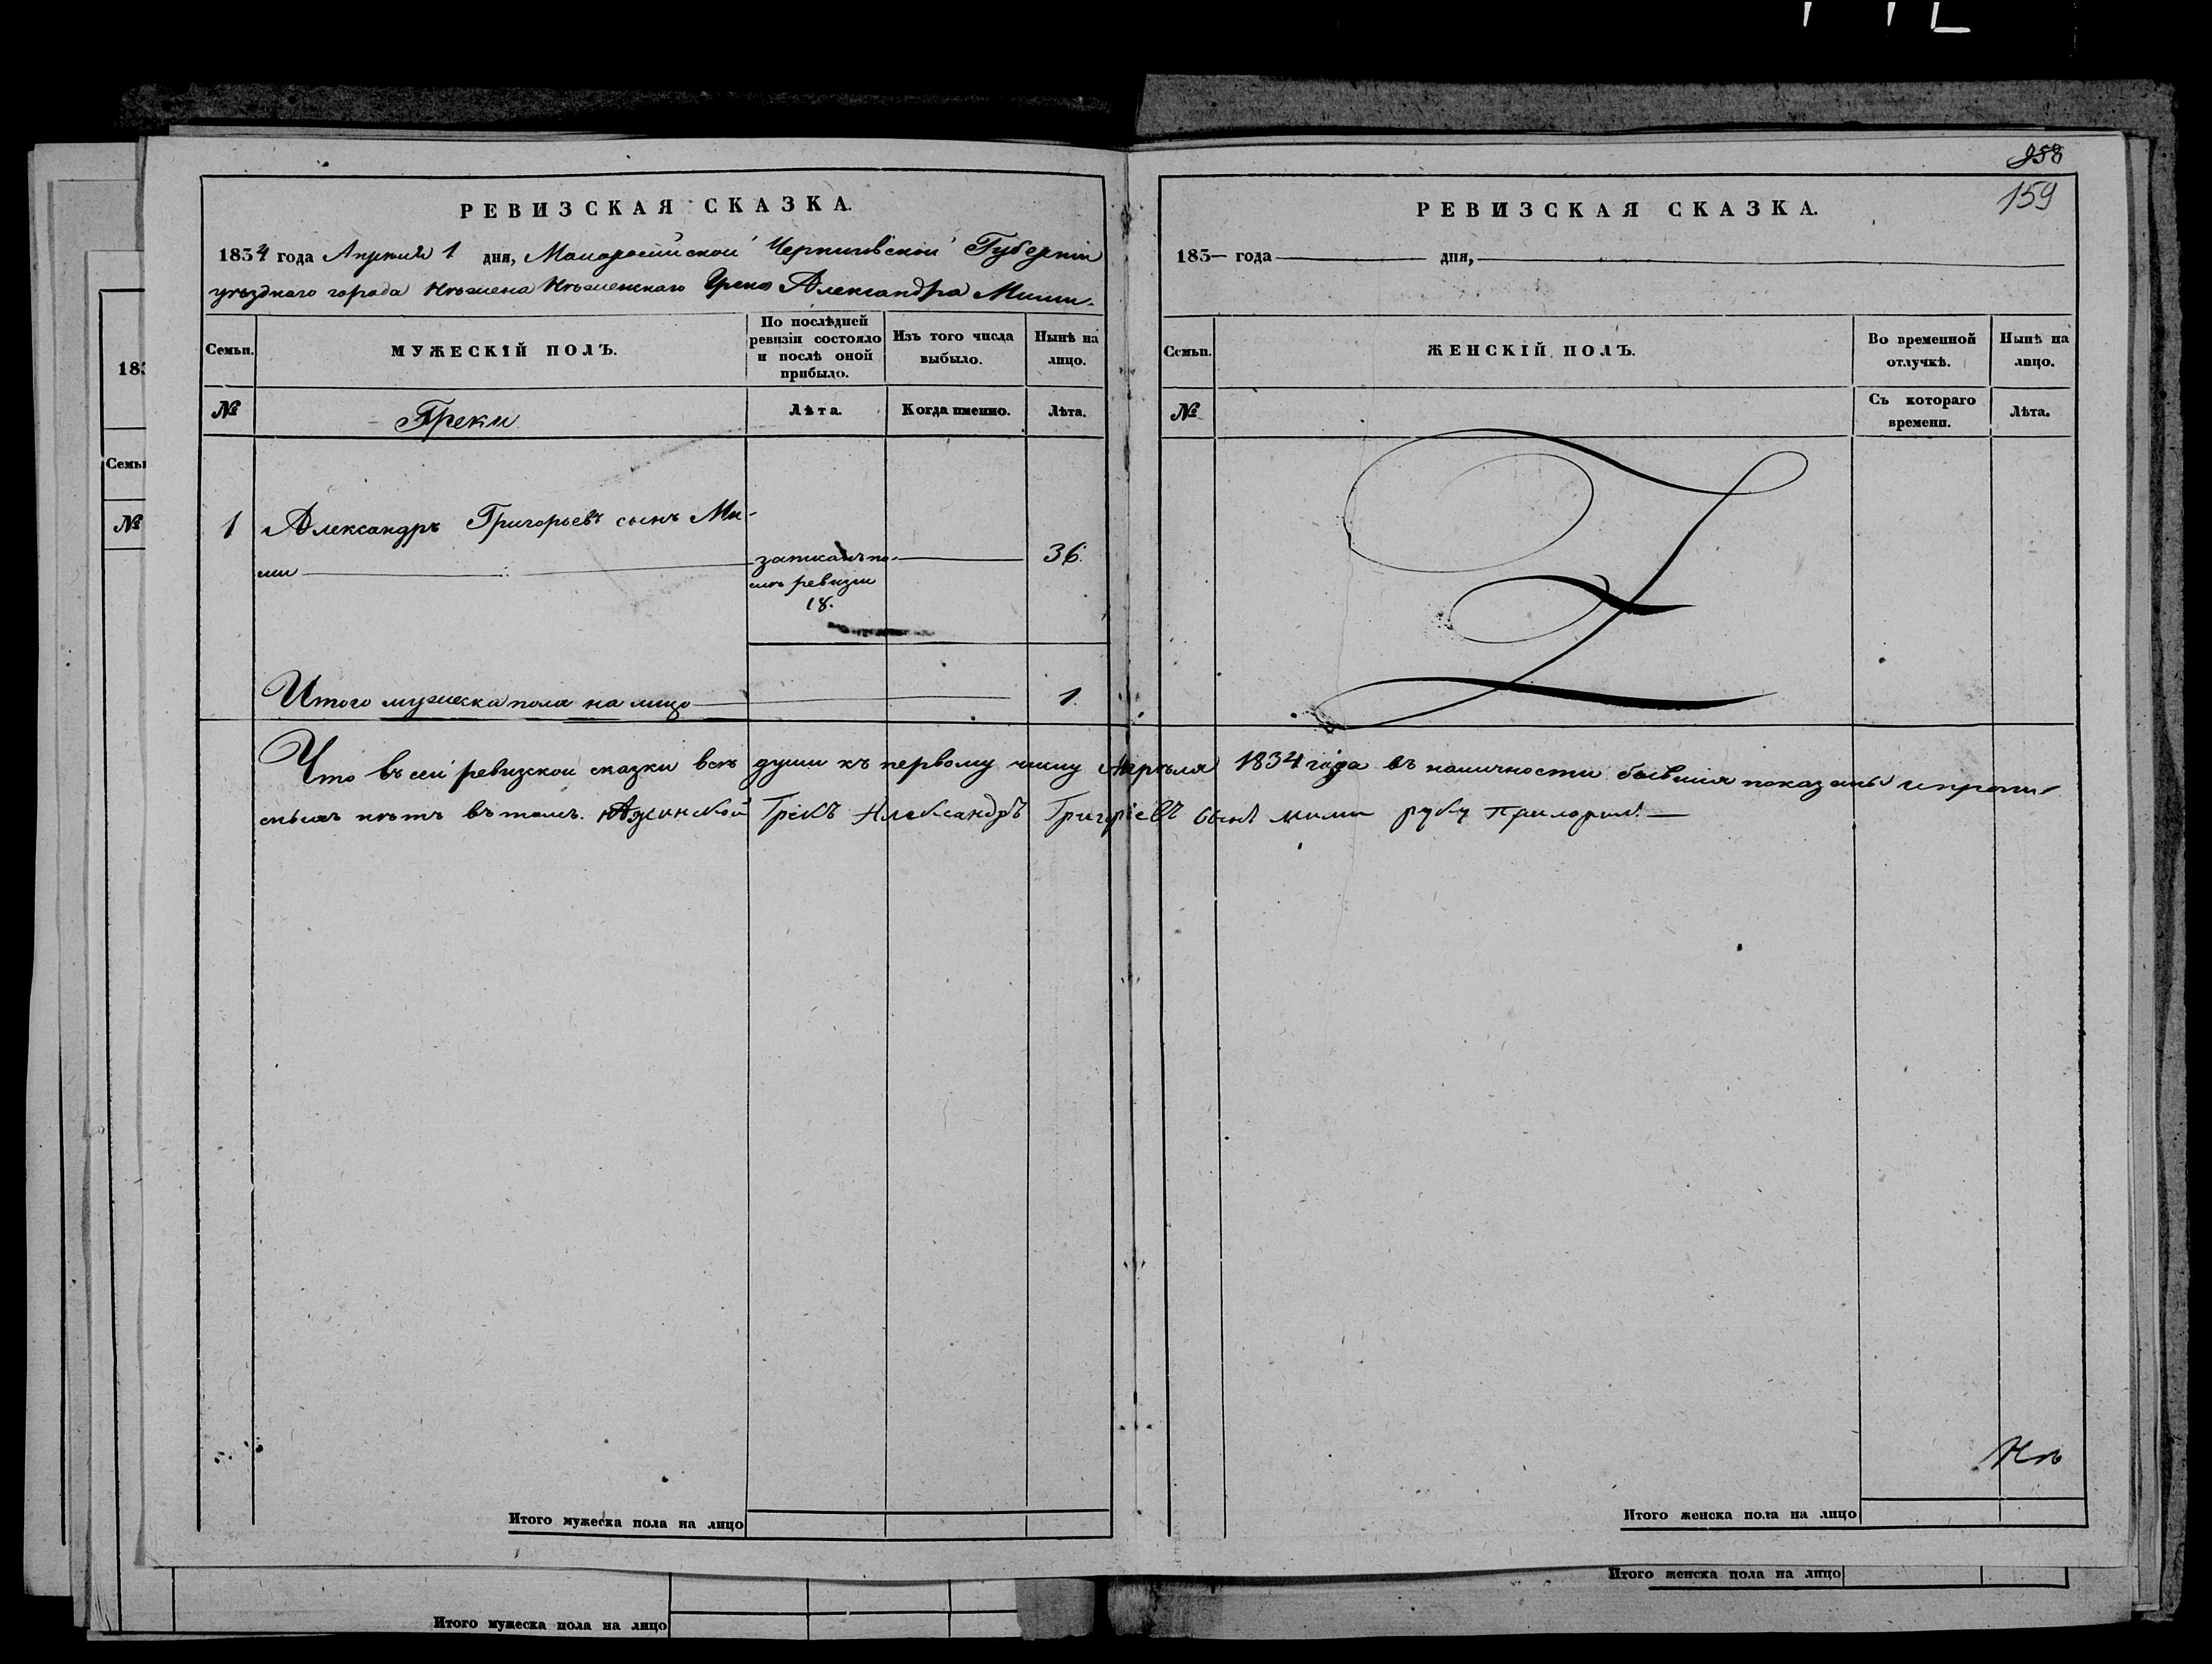 958
159
РЕВИЗСКАЯ СКАЗКА.
1834 года Апреля 1 дня, Малоросійской Черниговской Губерніи
уѣзднаго города Нѣжина Нѣжинскаго Грека Александра Мими.
Семьи.
МУЖЕСКІЙ ПОЛЪ.
По послѣдней ревизіи состояло и послѣ оной прибыло.
Изъ того числа выбыло.
Нынѣ на лицо.
№
Греки
Лѣта.
Когда именно.
Лѣта.
1 Александръ Григорьевъ сынъ Ми-
ми
ревизіи
18.
36.
Итого мужеска пола на лицо 1.
РЕВИЗСКАЯ СКАЗКА.
183— года дня,
Семьи.
ЖЕНСКІЙ ПОЛЪ.
Во временной отлучкѣ.
Нынѣ на лицо.
№
Съ котораго времени.
Лѣта.
Что въ сей ревизской сказки всѣ души къ первому числу Апрѣля 1834 года въ наличности бывшия показаны и
нѣтъ въ томъ. Грекъ Александръ Григоріевъ сынъ мими руку приложилъ.
Нѣ
Итого мужеска пола на лицо
Итого женска пола на лицо
Итого мужеска пола на лицо
Итого женска пола на лицо
183
Семьи
№